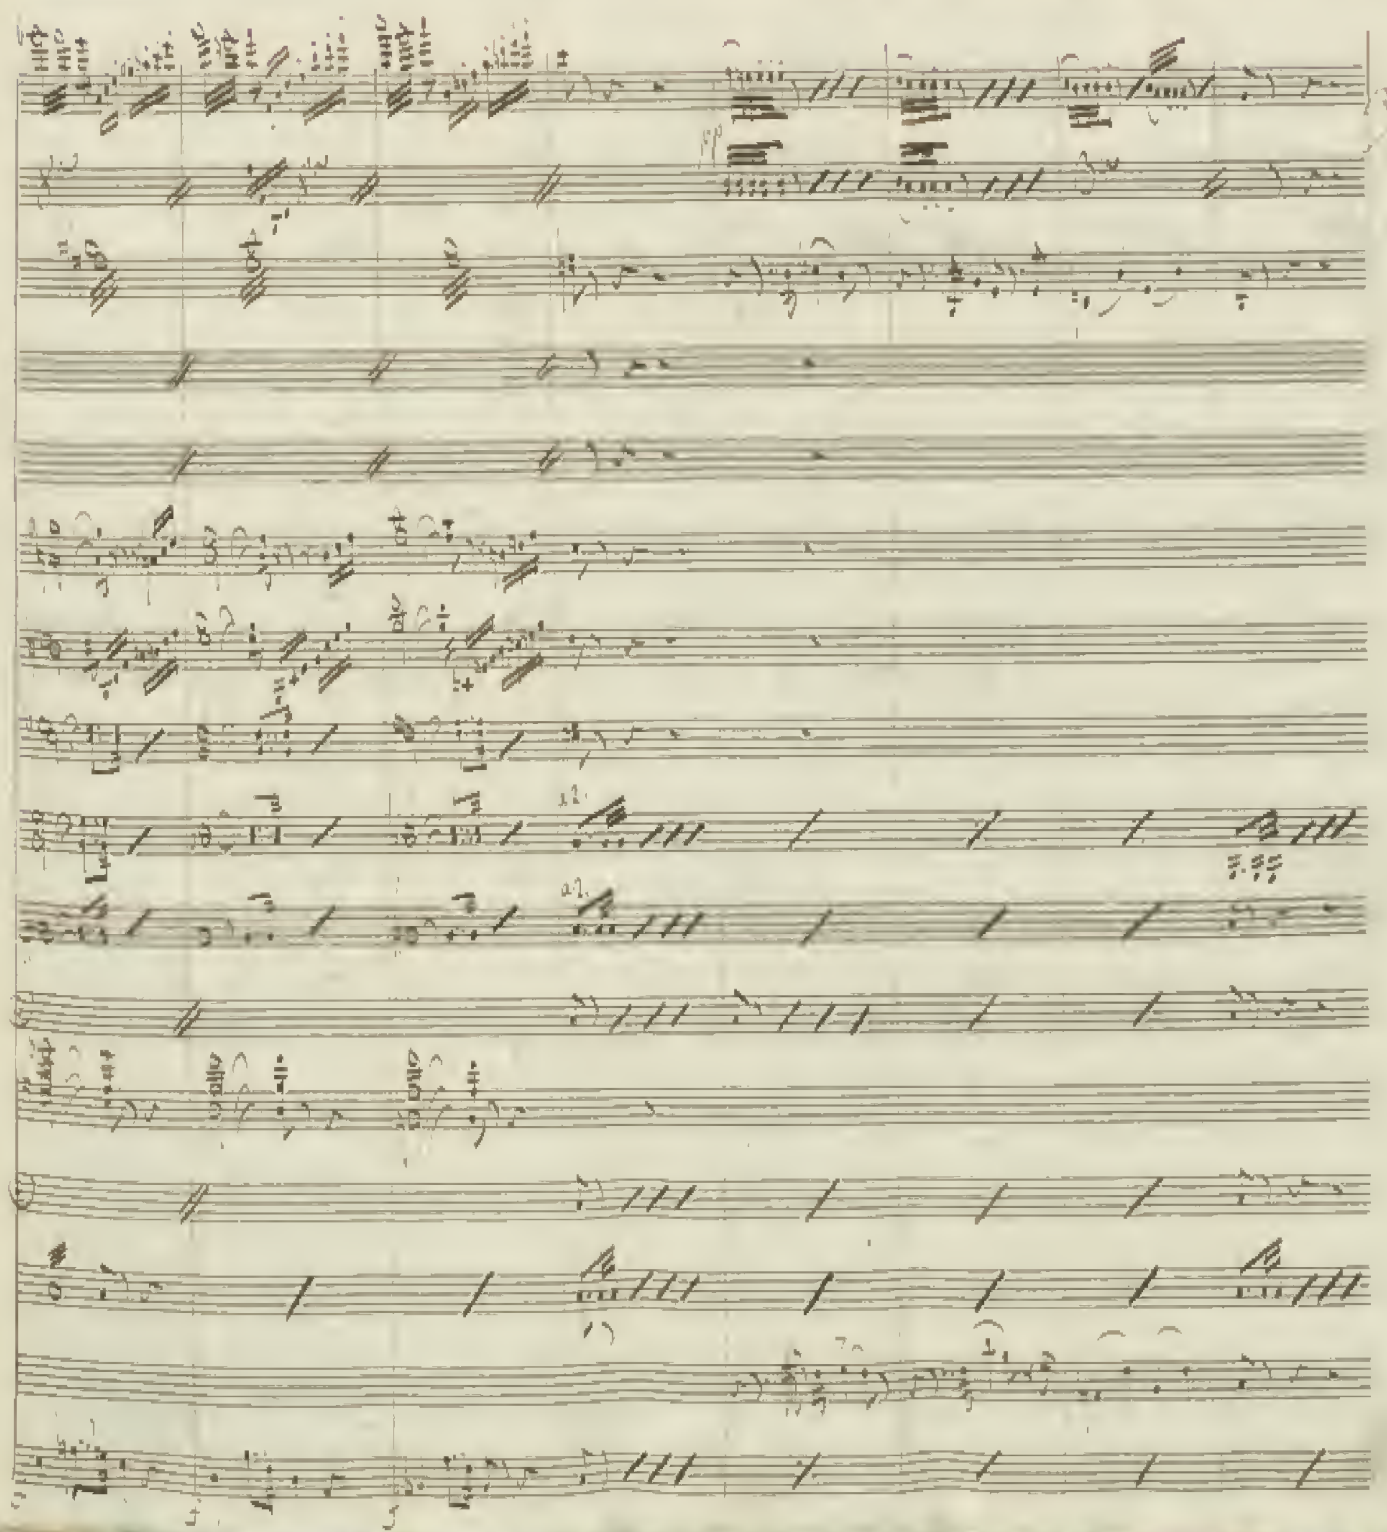 pp
a2.
a2.